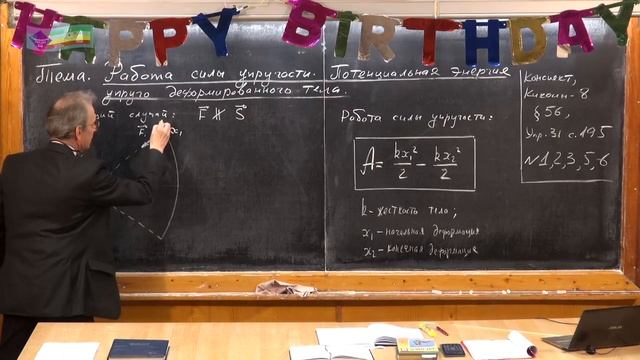 HAPPY BIRTHDAY
Тема. Работа силы упругости. Потенциальная энергия
упруго деформированного тела.
случай: F⃗ ∦ S⃗
F⃗₁ x₁
Работа силы упругости:
A = kx₁²/2 − kx₂²/2
k – жесткость тело;
x₁ – начальная деформация
x₂ – конечная деформация
Конспект,
Кикоин-8
§ 56,
Упр. 31 с. 195
N 1, 2, 3, 5, 6